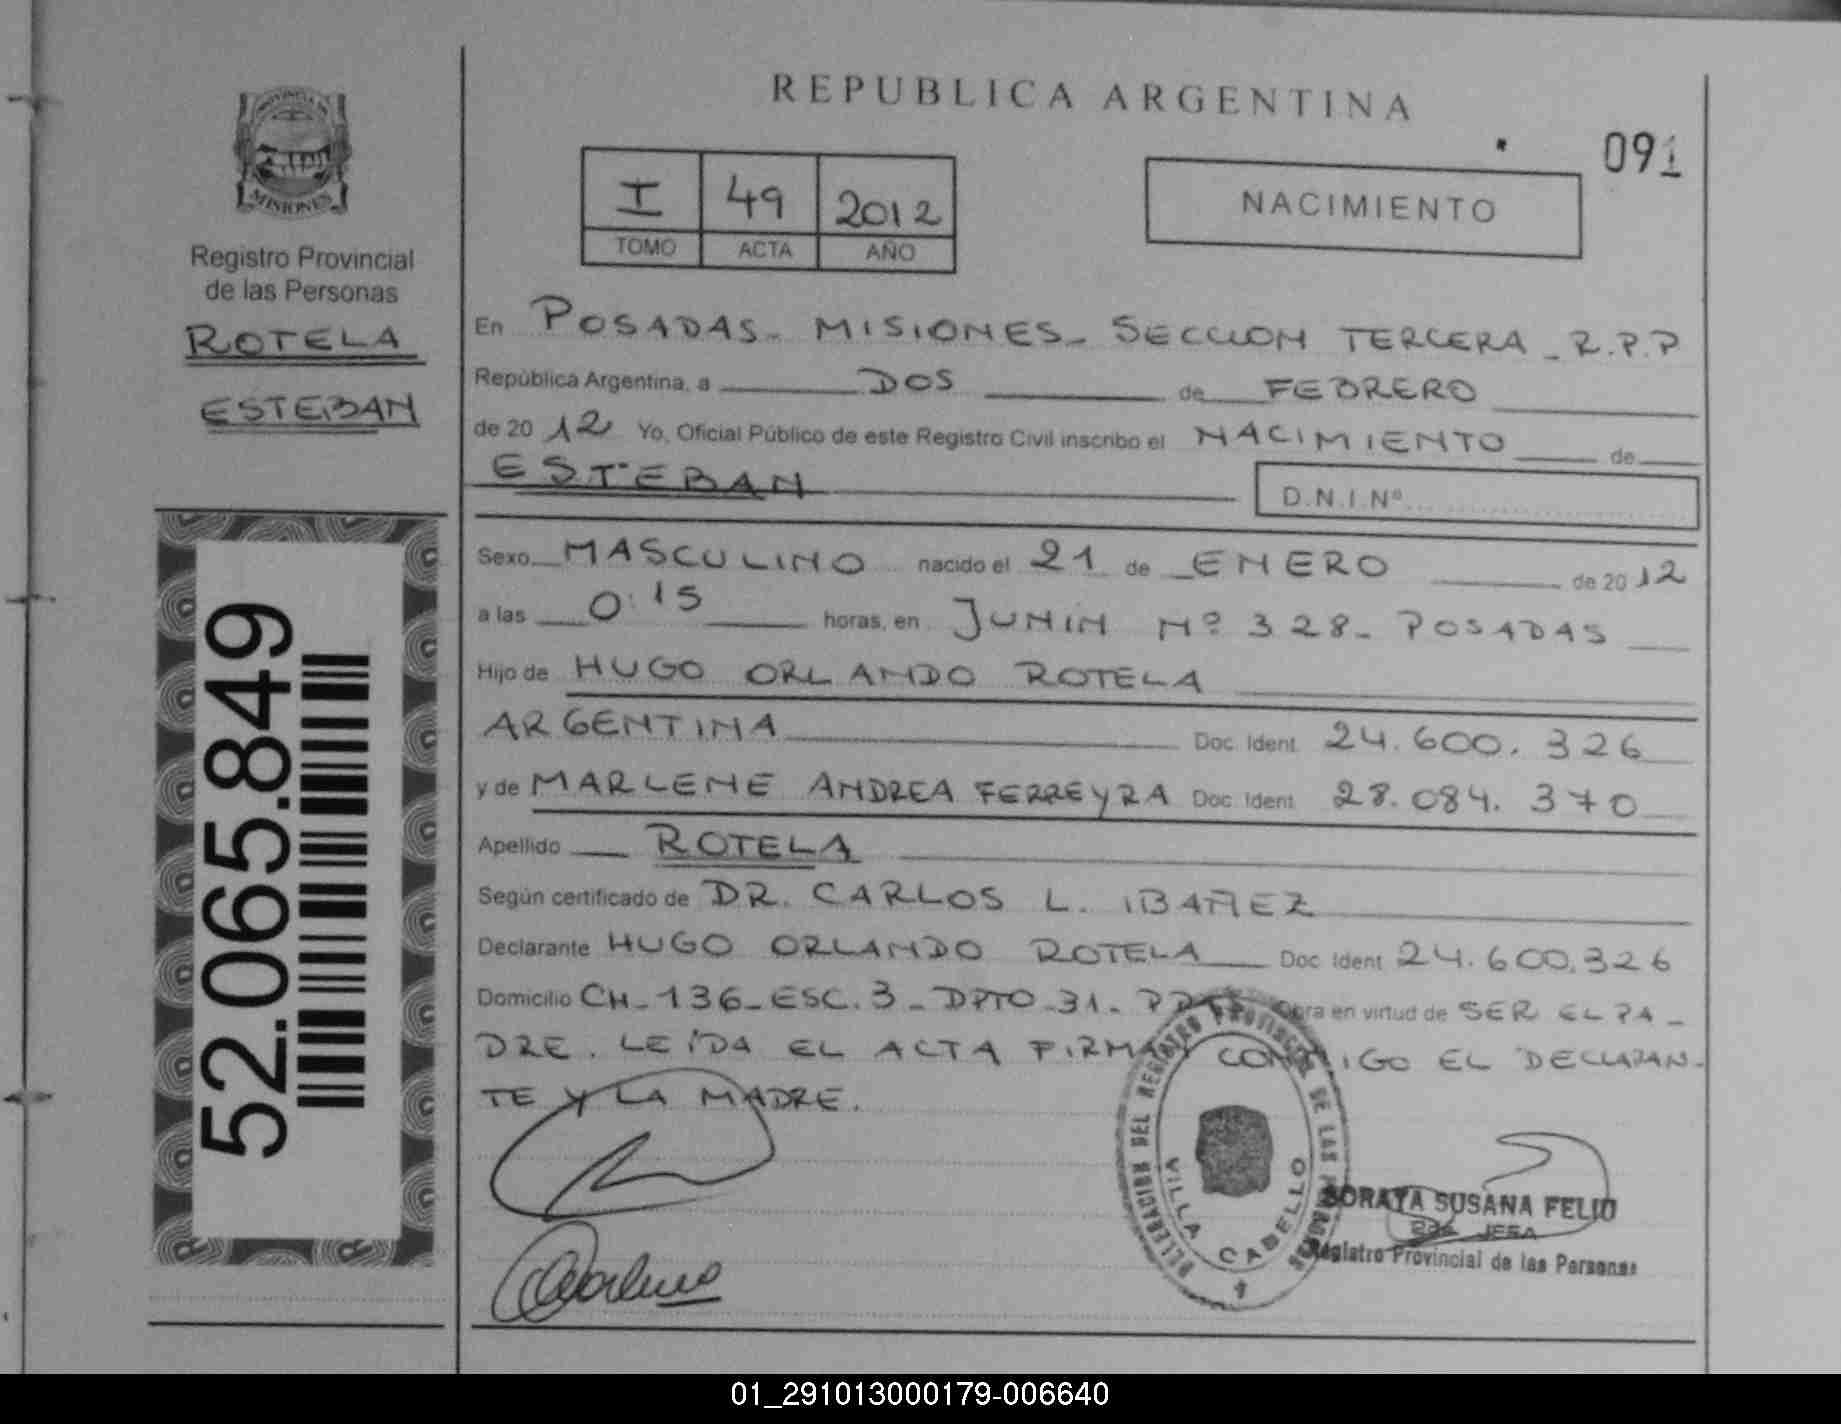 REPUBLICA ARGENTINA
091
PROVINCIA DE
MISIONES
Registro Provincial
de las Personas
ROTELA
ESTEBAN
52.065.849
I 49 2012
TOMO ACTA AÑO
NACIMIENTO
En POSADAS - MISIONES - SECCION TERCERA - R.P.P
República Argentina, a DOS de FEBRERO
de 20 12 Yo, Oficial Público de este Registro Civil inscribo el NACIMIENTO de
ESTEBAN
D.N.I.Nº
Sexo MASCULINO nacido el 21 de ENERO de 20 12
a las 0:15 horas, en JUNIN Nº 328 - POSADAS
Hijo de HUGO ORLANDO ROTELA
ARGENTINA Doc. Ident. 24.600.326
y de MARLENE ANDREA FERREYRA Doc. Ident. 28.084.370
Apellido ROTELA
Según certificado de DR. CARLOS L. IBAÑEZ
Declarante HUGO ORLANDO ROTELA Doc. Ident 24.600.326
Domicilio CH-136-ESC.3-DPTO-31- Obra en virtud de SER EL PA-
DRE. LEIDA EL ACTA FIRMAN CONMIGO EL DECLARAN-
TE Y LA MADRE.
DELEGACION DEL REGISTRO PROVINCIAL DE LAS PERSONAS
VILLA CABELLO
SORAYA SUSANA FELIU
JEFA
Registro Provincial de las Personas
Marlene
01_291013000179-006640